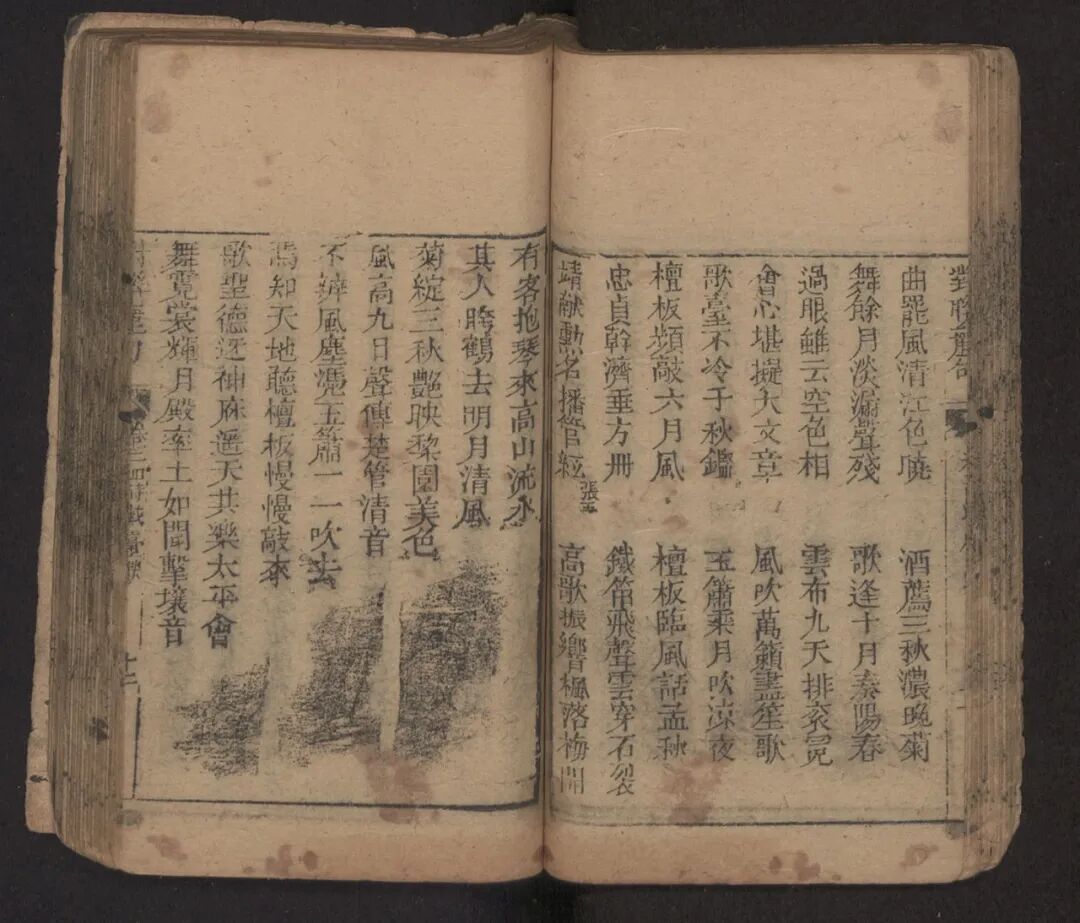 曲罷風清江色曉
酒薦三秋濃晚菊
舞餘月淡漏聲殘
歌逢十月奏陽春
過眼雖云空色相
雲布九天排袞冕
會心堪擬大文章
風吹萬籟盡笙歌
歌臺不冷千秋鑑
玉簫乘月吹涼夜
檀板頻敲六月風
檀板臨風話孟秋
忠貞幹濟垂方冊
鐵笛飛聲雲穿石裂
靖献勳名播管絃
高歌振響楓落梅開
有客抱琴來高山流水
其人跨鶴去明月清風
菊綻三秋艷映黎園美色
風高九日聲傳楚管清音
不辨風塵憑玉簫一一吹去
焉知天地聽檀板慢慢敲來
歌聖德迓神庥遥天共樂太平會
舞霓裳輝月殿率土如聞擊壤音